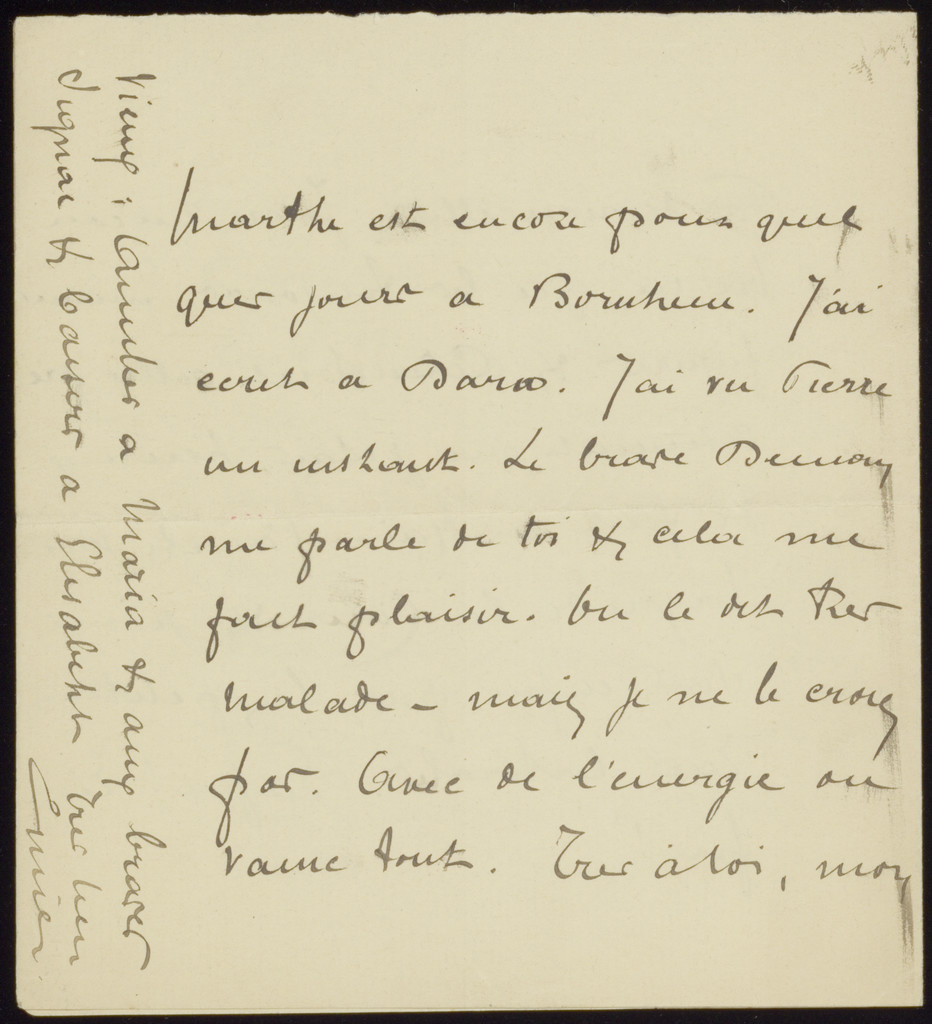 Marthe est encore pour quel
ques jours a Bornhem. J'ai
ecrit a Darzo. J'ai vu Pierre
un instant. Le brave Demon
me parle de toi & cela me
fait plaisir. On le dit tres
malade – mais je ne le crois
pas. Avec de l'energie on
vainc tout. Tres à toi, mon
vieux : Amities a Maria & aux braves
Signac & baisers a Elisabeth tres bien